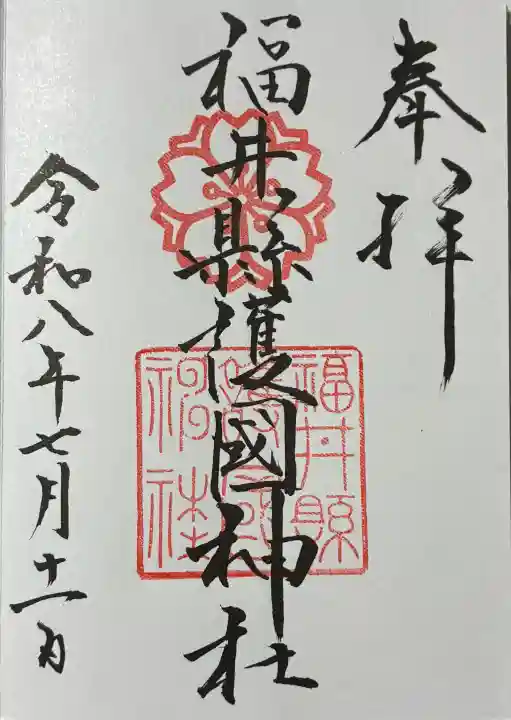 奉拝
福井縣護國神社
福井縣
護國
神社
令和八年七月十一日